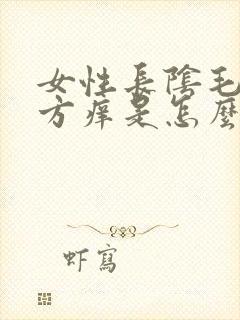 女性長陰毛
方痒是怎麼
虾寫